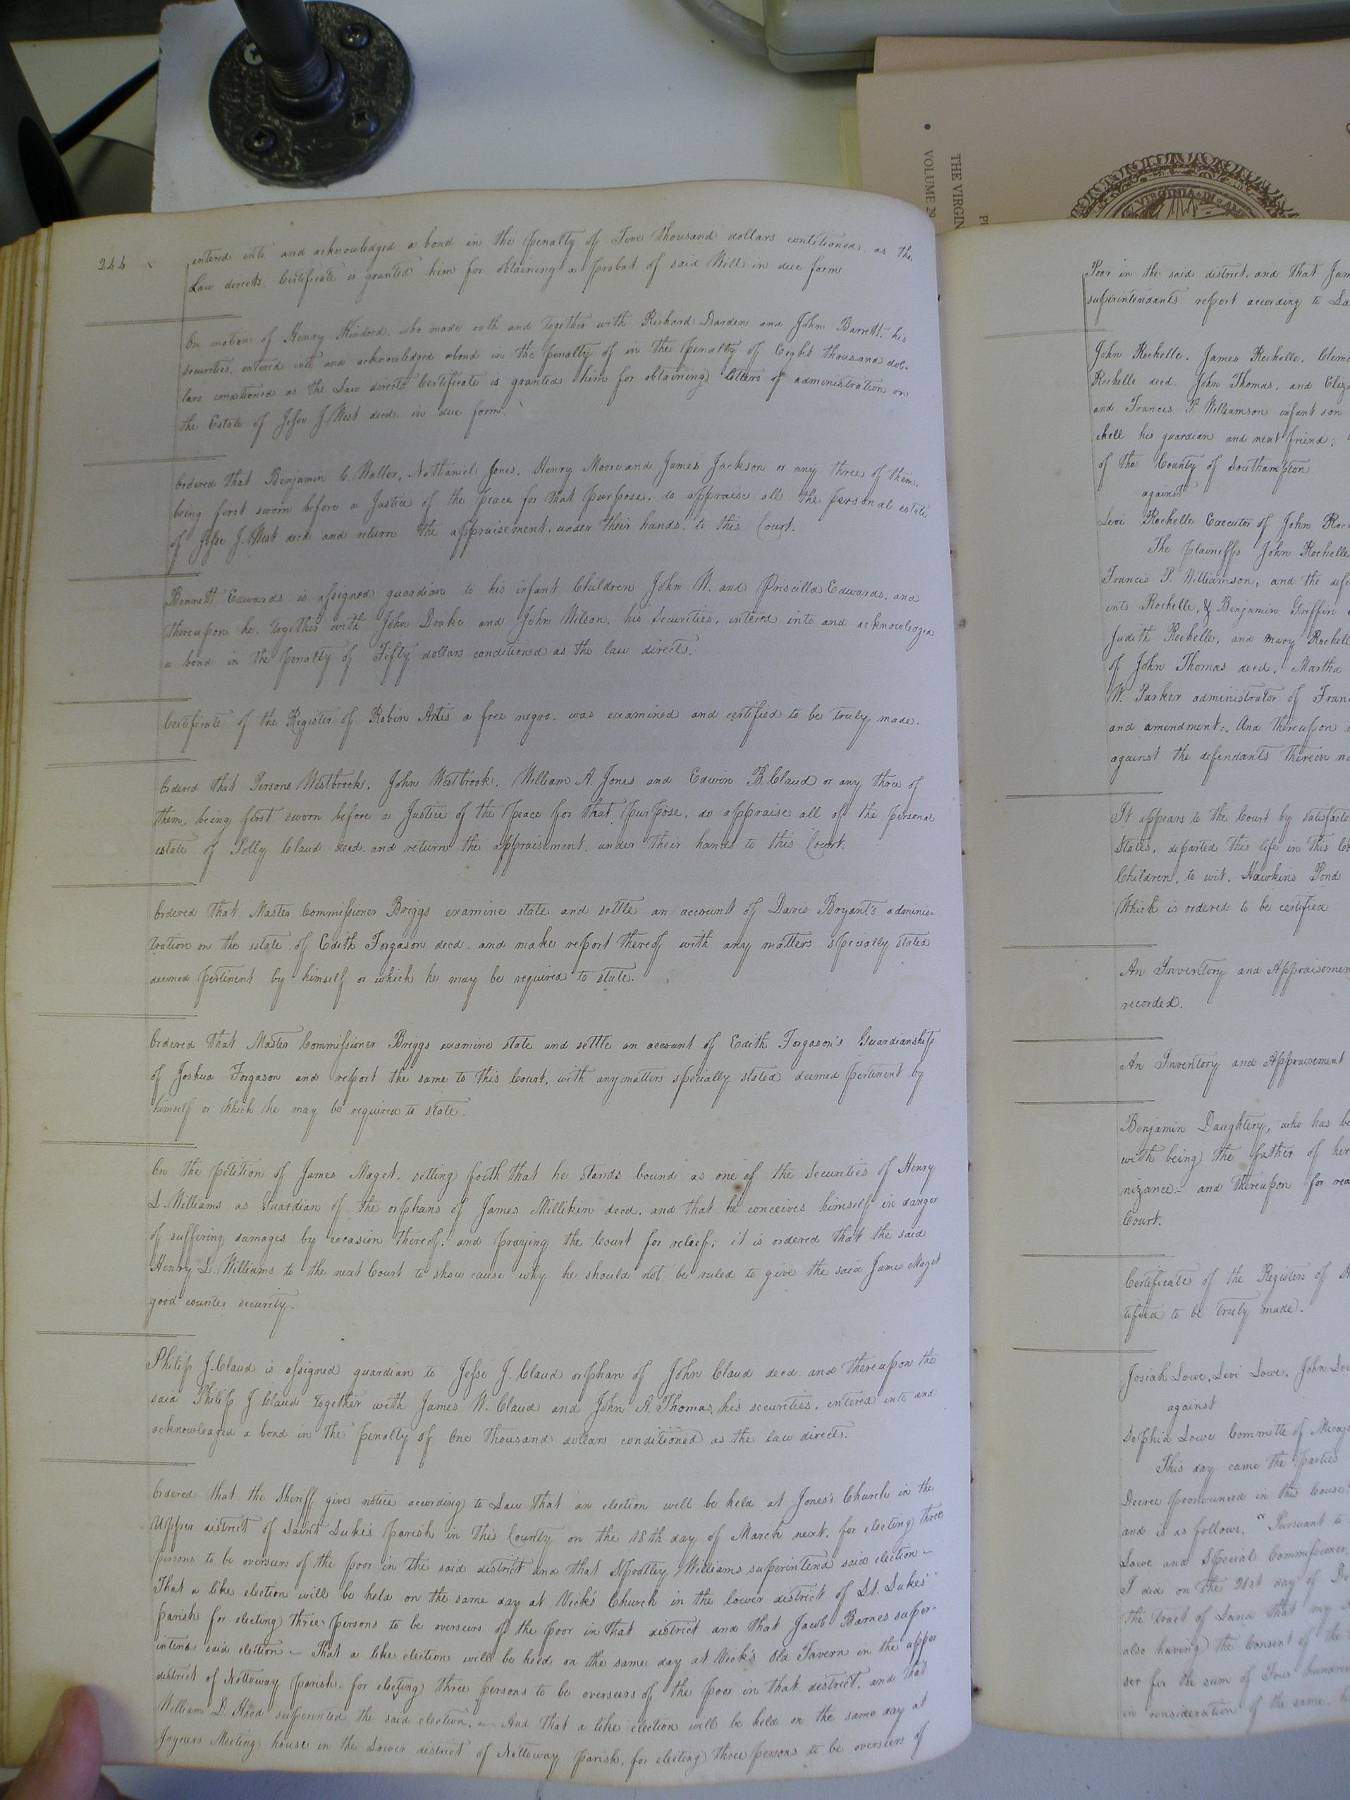 244
entered into and acknowledged a bond in the penalty of Five thousand dollars contitioned as the
Law directs Certificate is granted him for obtaining a probat of said Will in due form
On motion of Henry Kindred, who made oath and together with Richard Darden and John Barrett, his
securities, entered into and acknowledged abond in the penalty of in the penalty of Eight thousand dol-
lars conditioned as the Law directs Certificate is granted him for obtaining letters of administration on
the Estate of Jesse J. West decd. in due form.
Ordered that Benjamin C. Waller, Nathaniel Jones, Henry Moore and James Jackson or any three of them,
being first sworn before a Justice of the peace for that purpose, do appraise all the personal estate
of Jesse J. West decd. and return the appraisement, under their hands, to this Court.
Bennett Edwards is assigned guardian to his infant Children John W. and Priscilla Edwards, and
thereupon he, together with John Drake and John Wilson, his Securities, entered into and acknowledged
a bond in the penalty of Fifty dollars conditioned as the law directs.
Certificate of the Register of Robin Artis a free negro, was examined and certified to be truly made.
Ordered that Persons Westbrook, John Westbrook, William A Jones and Edwin B. Claud or any three of
them, being first sworn before a Justice of the peace for that purpose, do appraise all of the personal
estate of Polly Claud decd. and return the appraisement, under their hands to this Court.
Ordered that Master Commissioner Briggs examine state and settle an account of Davis Bryant's adminis-
tration on the estate of Edith Forgason decd. and make report thereof with any matters specially stated
deemed pertinent by himself or which he may be required to state.
Ordered that Master Commissioner Briggs examine state and settle an account of Edith Forgason's Guardianship
of Joshua Forgason and report the same to this Court, with any matters specially stated deemed pertinent by
himself or which he may be required to state.
On the petition of James Maget, setting forth that he stands bound as one of the Securities of Henry
L. Williams as Guardian of the orphans of James Millikin decd. and that he conceives himself in danger
of suffering damages by occasion thereof, and praying the Court for relief; it is ordered that the said
Henry L. Williams to the next Court to show cause why he should not be ruled to give the said James Maget
good counter security.
Philip J. Claud is assigned guardian to Jesse J. Claud orphan of John Claud decd. and thereupon the
said Philip J. Claud together with James W. Claud and John A. Thomas, his securities, entered into and
acknowledged a bond in the penalty of One thousand dollars conditioned as the law directs.
Ordered that the Sheriff give notice according to Law that an election will be held at Jones's Church in the
Upper district of Saint Luke's parish in this County on the 18th day of March next, for electing three
persons to be overseers of the poor in the said district and that Williams superintend said election -
That a like election will be held on the same day at Vick's Church in the lower district of St. Lukes'
parish for electing three persons to be overseers of the poor in that district and that Jacob Barnes super-
intend said election - That a like election will be held on the same day at Vick's Old Tavern in the upper
district of Nottoway parish, for electing three persons to be overseers of the poor in that district, and that
William D. Hood superintend the said election. - And that a like election will be held on the same day at
Joyners Meeting house in the Lower district of Nottoway parish, for electing three persons to be overseers of
Poor in the said district, and that Jam
superintendants report according to La
John Rochelle, James Rochelle, Cleme
Rochelle decd. John Thomas, and Eliz
and Francis P. Williamson infant son
chell his guardian and next friend;
of the County of Southampton
against
Levi Rochelle Executor of John Roc
The plaintiffs John Rochelle
Francis P. Williamson, and the def
ints Rochelle, & Benjamin Griffin
Judith Rochelle, and Mary Rochell
of John Thomas decd, Martha
W. Parker administrator of Fran
and amendment; And thereupon
against the defendants therein na
It appears to the Court by satisfacto
States, departed this life in this Co
Children, to wit, Hawkins Pond
Which is ordered to be certified
An Inventory and Appraisemen
recorded.
An Inventory and Appraisement
Benjamin Daughtery, who has be
with being the father of her
nizance - and thereupon for rea
Court.
Certificate of the Registers of
tified to be truly made.
Josiah Lowe, Levi Lowe, John Lo
against
Sophia Lowe Committe of
This day came the parties
Decree pronounced in this Cause
and is as follows, "Pursuant to
Lowe and Special Commissioner
I did on the 21st day of De
the tract of Land that my
also having the consent of the
ser for the sum of Four hundred
in consideration of the same, h
THE VIRGIN
VOLUME 29
VIRGINIA